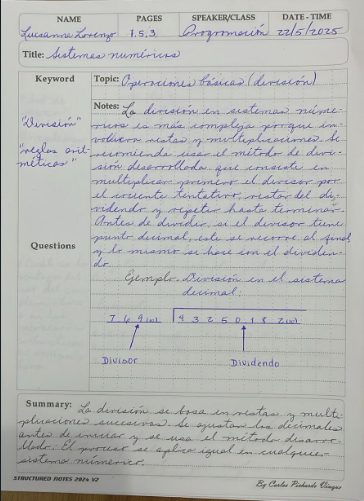 NAME PAGES SPEAKER/CLASS DATE - TIME
Lucianna Lorenzo 1.5.3. Programación 22/5/2025
Title: Sistemas numéricos
Keyword
Topic: Operaciones básicas (división)
Notes: La división en sistemas númé-
ricos es más compleja porque in-
volucra restas y multiplicaciones. Se
recomienda usar el método de divi-
sión desarrollada que consiste en
multiplicar primero el divisor por
el cociente tentativo, restar del di-
videndo y repetir hasta terminar.
Antes de dividir, si el divisor tiene
punto decimal, este se recorre al final
y lo mismo se hace con el dividen-
do.
"División"
"reglas arit-
méticas"
Questions
Ejemplo. División en el sistema
decimal:
7 6 9(10) 9 3 2 5 0 1 8 2(10)
Divisor Dividendo
Summary: La división se basa en restas y multi-
plicaciones sucesivas. Se ajustan los decimales
antes de iniciar y se usa el método desarro-
llado. El proceso se aplica igual en cualquier
sistema númerico.
STRUCTURED NOTES 2024 V2
By Carlos Pichardo Viuque